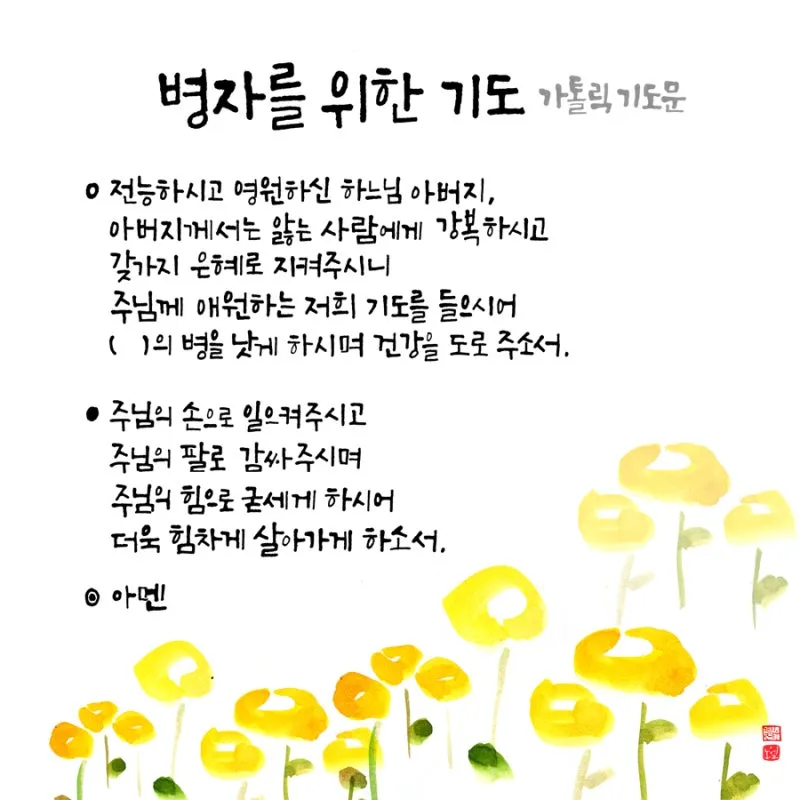 병자를 위한 기도 가톨릭기도문
○ 전능하시고 영원하신 하느님 아버지,
아버지께서는 앓는 사람에게 강복하시고
갖가지 은혜로 지켜주시니
주님께 애원하는 저희 기도를 들으시어
( )의 병을 낫게 하시며 건강을 도로 주소서.
● 주님의 손으로 일으켜주시고
주님의 팔로 감싸주시며
주님의 힘으로 굳세게 하시어
더욱 힘차게 살아가게 하소서.
◎ 아멘